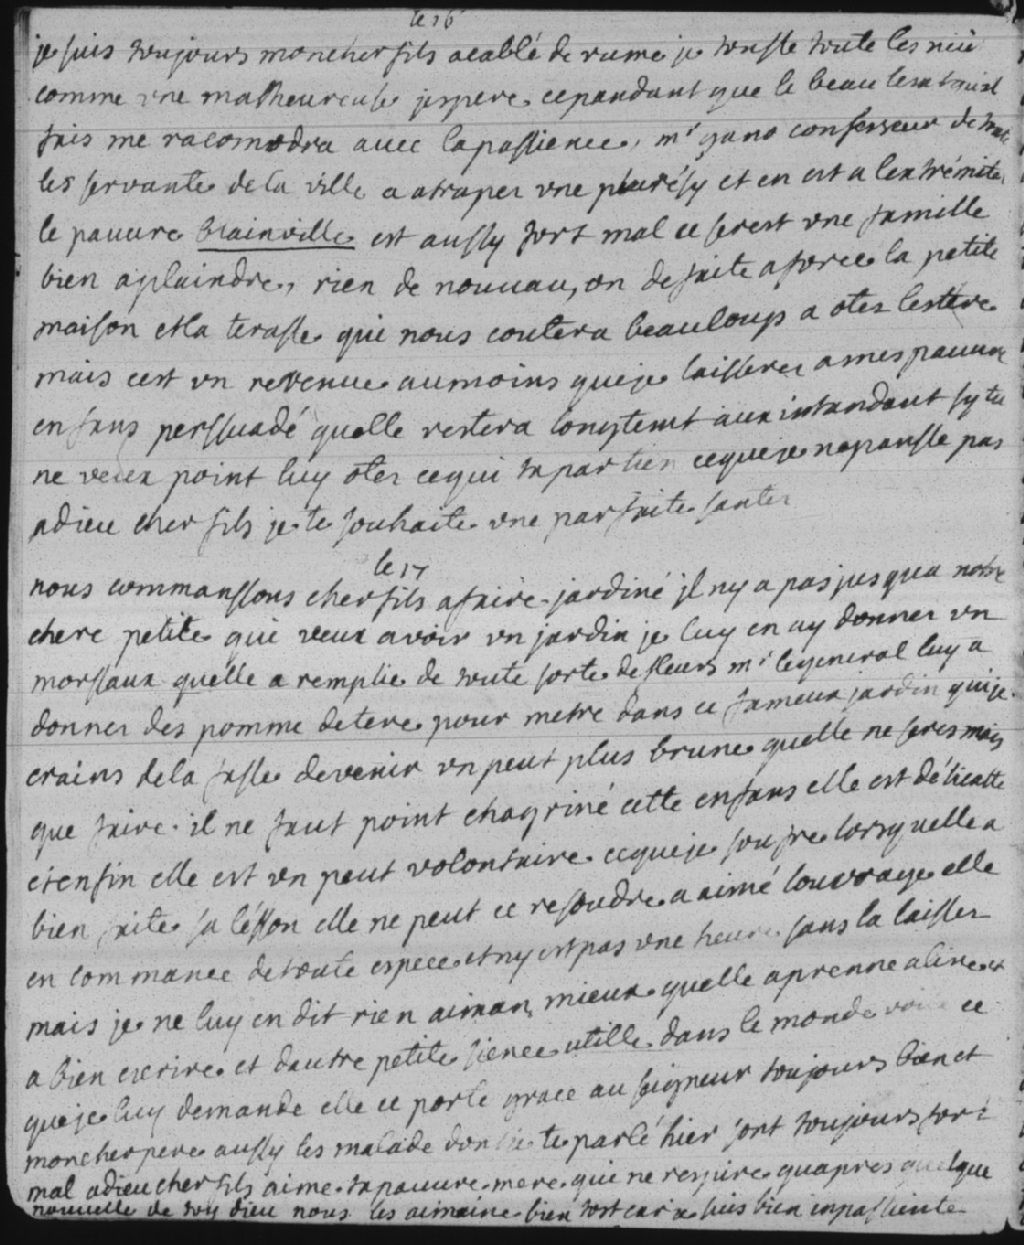 le 16
je suis toujours mon cher fils acablé de rume je tousse toute les nui
comme une malheureuse jespere cepandant que le beau tems quil
fais me racomodra avec la passience, mr gano confesseur de toute
les servante de la ville a atraper une plurésy et en est a lextrémité
le pauvre Brainville est aussy fort mal ce serest une famille
bien a plaindre, rien de nouvau, on defaite a force la petite
maison et la terasse qui nous coutera beaucoups a oter les tere
mais cest un revenue aumoins que je laisserer a mes pauvre
enfans perssuadé quelle restera longtemt aux intandant sy tu
ne veux point luy oter ce qui tapartien ce que je napansse pas
adieu cher fils je te souhaite une parfaite santer
le 17
nous commanssons cher fils a faire jardiné jl ny a pas jusqua notre
chere petite qui veux avoir un jardin je luy en ay donner un
morssaux quelle a remplie de toute sorte de fleurs mr le general luy a
donner des pomme de tere pour metre dans ce fameux jardin qui je
crains de la fasse devenir un peut plus brune quelle ne seres mais
que faire il ne faut point chagriné cette enfans elle est délicatte
et enfin elle est un peut volontaire ce que je soufre lorsquelle a
bien faite sa lésson elle ne peut ce resoudre a aimé louvrage elle
en commance de toute espece et ny est pas une heure sans la laisser
mais je ne luy en dit rien aiman mieux quelle aprenne a lire et
a bien ecrire et dautre petite sience utille dans le monde voila ce
que je luy demande elle ce porte grace au seigneur toujours bien et
mon cher pere aussy les malade don je te parlé hier sont toujours fort
mal adieu cher fils aime ta pauvre mere qui ne respire quapres quelque
nouvelle de toy dieu nous les aimaine bien tost car je suis bien inpassiente